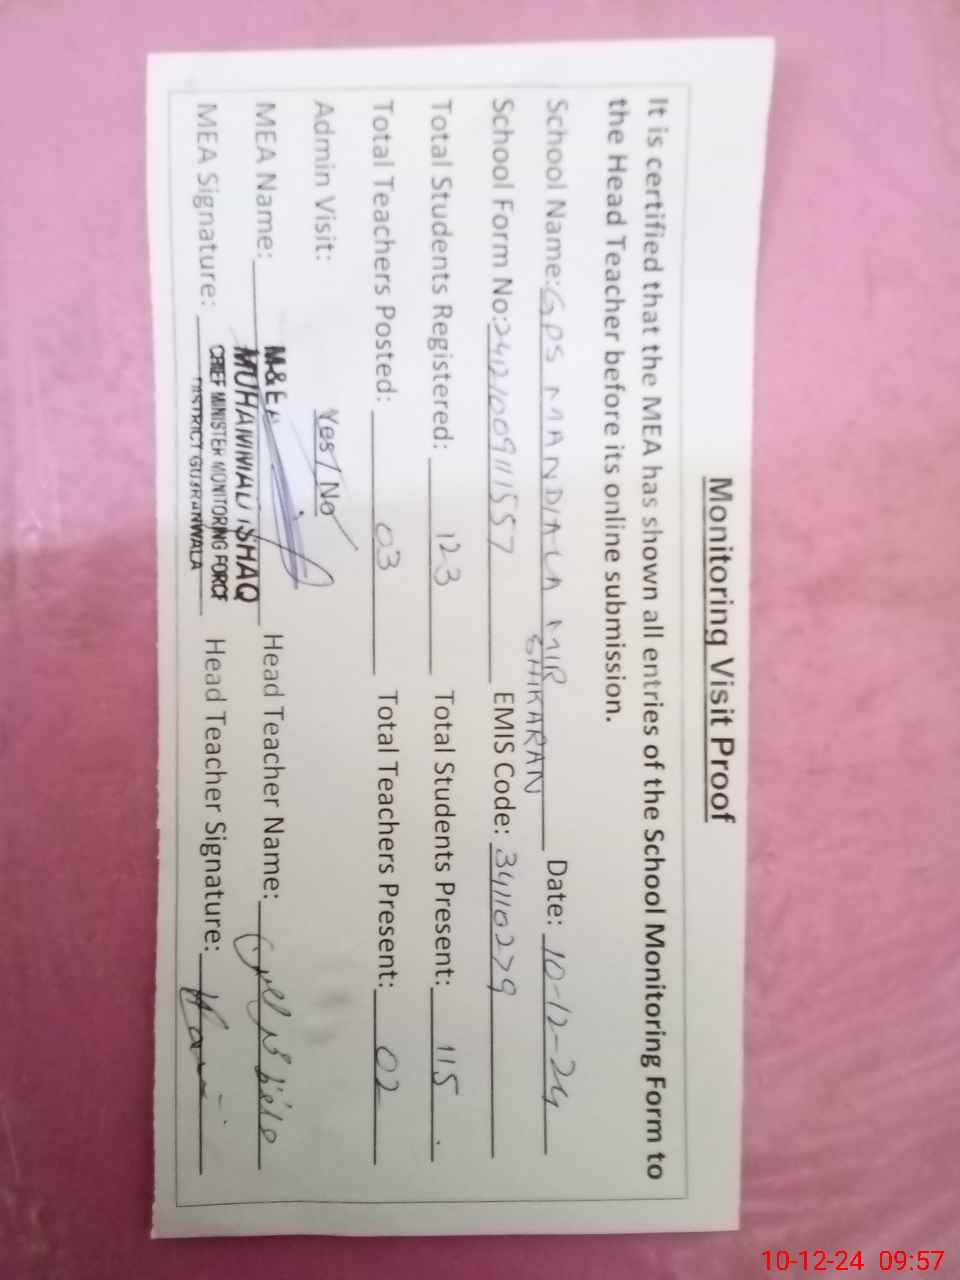 Monitoring Visit Proof
It is certified that the MEA has shown all entries of the School Monitoring Form to
the Head Teacher before its online submission.
School Name: GPS MANDIALA MIR SHKARAN Date: 10-12-24
School Form No: 2412100911557 EMIS Code: 34110279
Total Students Registered: 123 Total Students Present: 115
Total Teachers Posted: 03 Total Teachers Present: 02
Admin Visit: Yes / No
MEA Name: Head Teacher Name:
MEA Signature: Head Teacher Signature:
M&EA
MUHAMMAD ISHAQ
CHIEF MINISTER MONITORING FORCE
DISTRICT GUJRANWALA
10-12-24 09:57